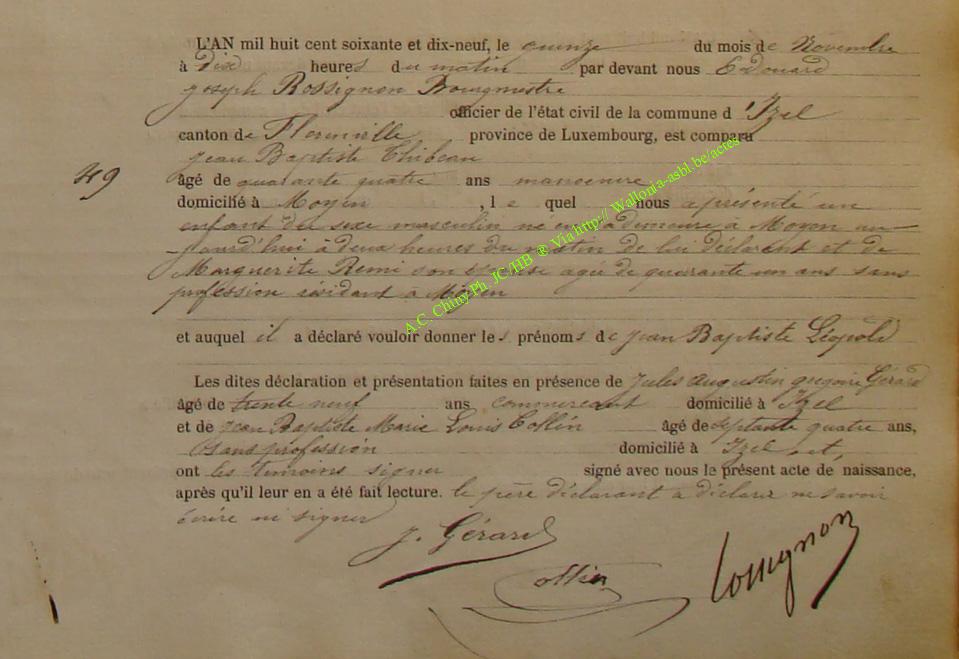 L'AN mil huit cent soixante et dix-neuf, le quinze du mois de Novembre
à Dix heures du matin par devant nous Edouard
Joseph Rossignon Bourgmestre
officier de l'état civil de la commune d'Izel
canton de Florenville province de Luxembourg, est comparu
Jean Baptiste Thibeau
49
âgé de quarante quatre ans manoeuvre
domicilié à Moyen, le quel nous a présenté un
enfant du sexe masculin né en sa demeure à Moyen au-
jourd'hui à deux heures du matin de lui déclarant et de
Marguerite Remi son épouse agée de quarante un ans sans
profession résidant à Moyen
et auquel il a déclaré vouloir donner les prénoms de Jean Baptiste Léopold
Les dites déclaration et présentation faites en présence de Jules Augustin Gregoire Gérard
âgé de trente neuf ans commercant domicilié à Izel
et de Jean Baptiste Marie Louis Collin âgé de septante quatre ans,
sans profession domicilié à Izel et,
ont les temoins signer signé avec nous le présent acte de naissance,
après qu'il leur en a été fait lecture. le père déclarant a déclarer ne savoir
écrire ni signer
J. Gérard
Collin
Rossignon
A.C. Chiny-Ph. JC/HB ® Via http://Wallonia-asbl.be/actes